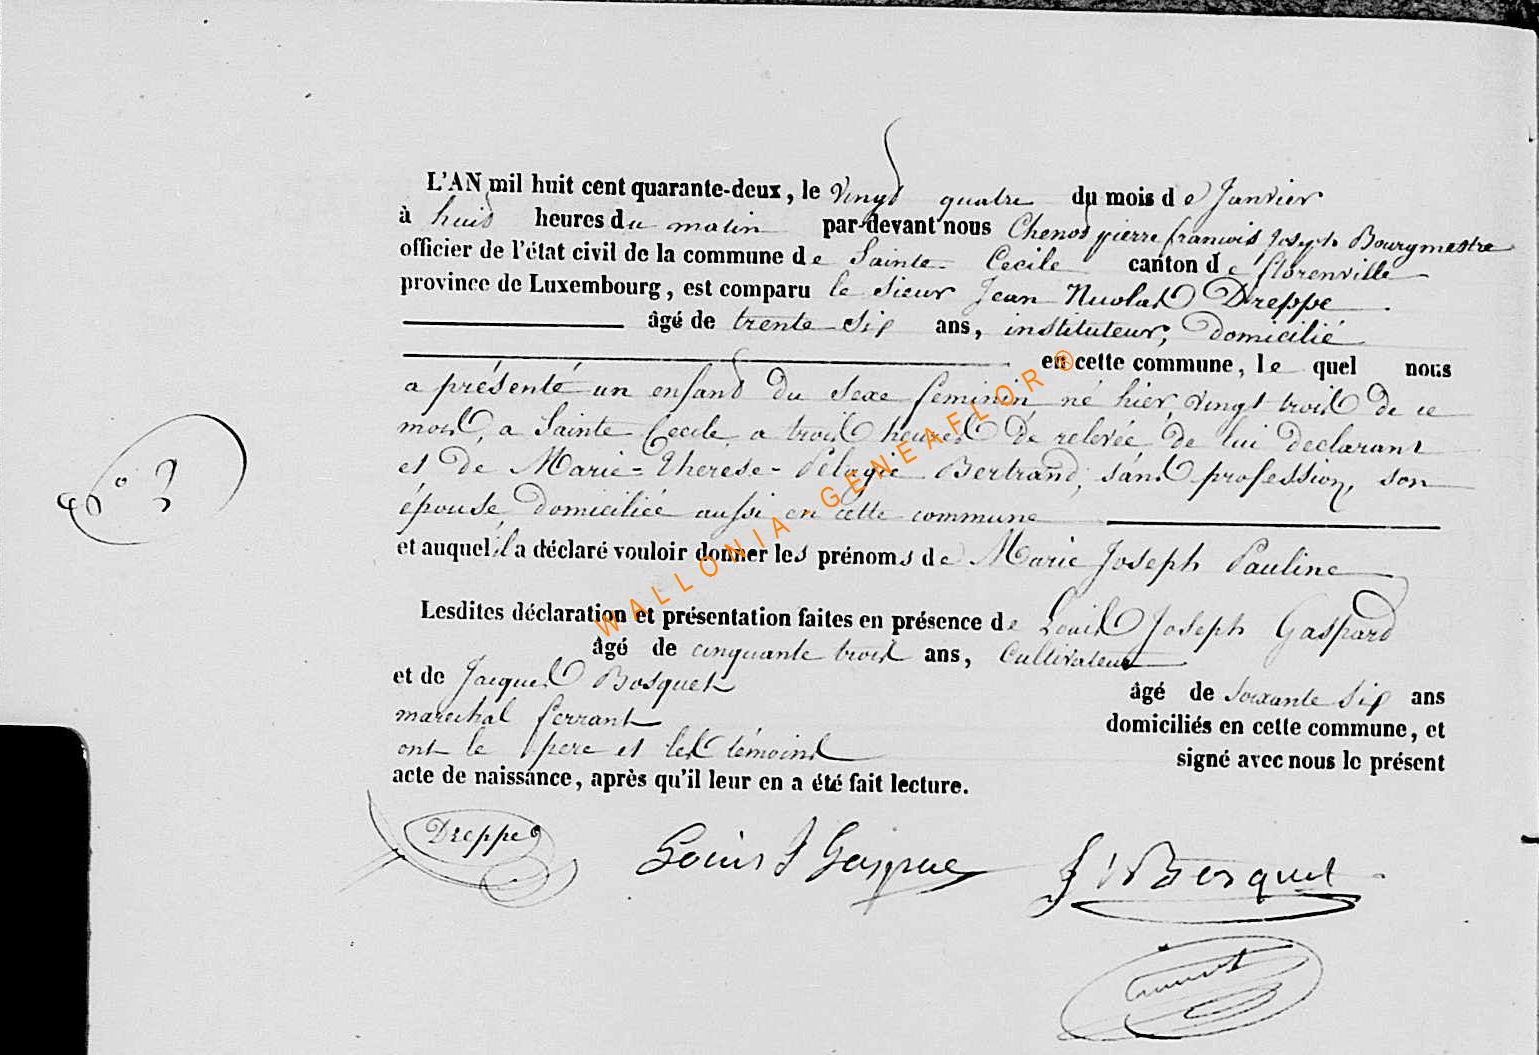 L'AN mil huit cent quarante-deux, le vingt quatre du mois de Janvier
à huit heures du matin par-devant nous Chenot pierre francois Joseph Bourgmestre
officier de l'état civil de la commune de Sainte Cecile canton de florenville
province de Luxembourg, est comparu le sieur Jean Nicolas Dreppe
âgé de trente six ans, instituteur, domicilié
en cette commune, le quel nous
a présenté un enfant du sexe feminin né hier, vingt trois de ce
mois, a Sainte Cecile, a trois heures de relevée de lui declarant
et de Marie=Therese=Pélagie Bertrand, sans profession, son
épouse domiciliée aussi en cette commune
et auquel il a déclaré vouloir donner les prénoms de Marie Joseph Pauline
Lesdites déclaration et présentation faites en présence de Louis Joseph Gaspard
âgé de cinquante trois ans, Cultivateur
et de Jacques Bosquet âgé de soixante six ans
marechal ferrant domiciliés en cette commune, et
ont le pere et les témoins signé avec nous le présent
acte de naissance, après qu'il leur en a été fait lecture.
Dreppe Louis J Gaspard Bosquet
N° 3
WALLONIA-GENEAFLOR®